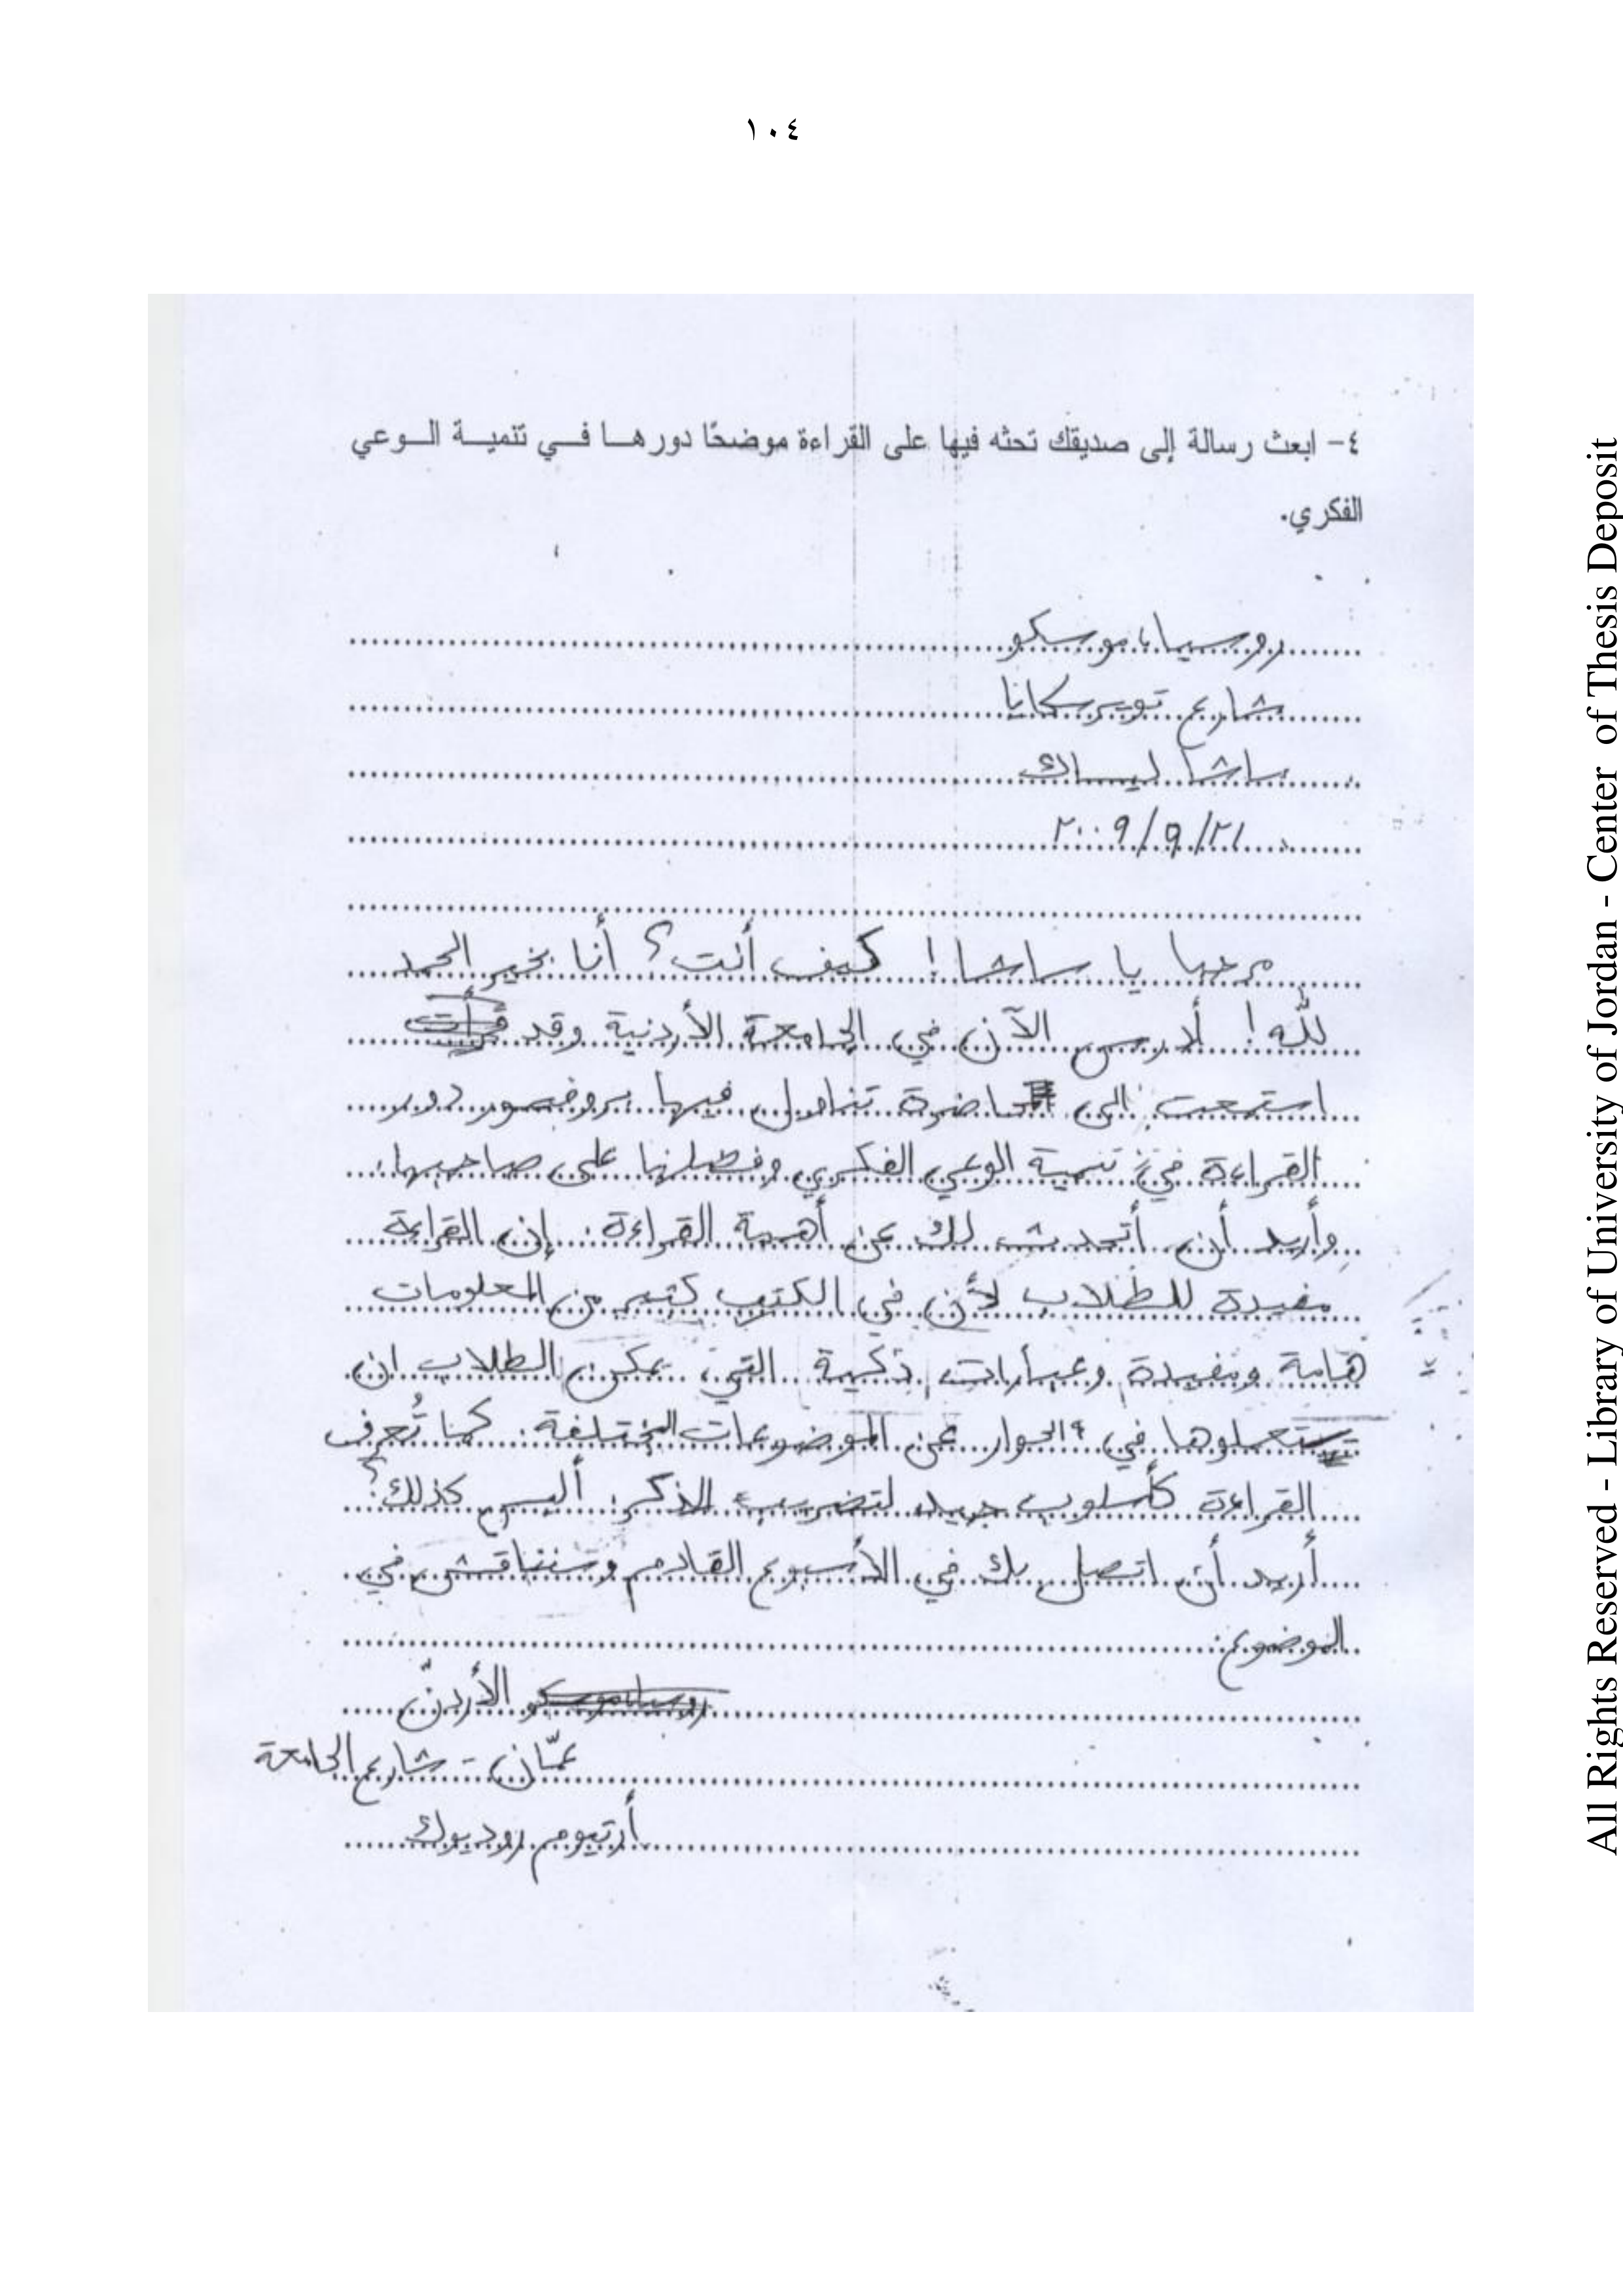 ١٠٤
٤- ابعث رسالة إلى صديقك تحثه فيها على القراءة موضحًا دورها في تنمية الوعي
الفكري.
روسيا، موسكو
شارع توبيرسكايا
ساشا ليساك
٢١/٥/٢٠٠٩
مرحبا يا ساشا! كيف أنت؟ أنا بخير الحمد
لله! أدرس الآن في الجامعة الأردنية وقد قرأت
استمعت إلى محاضرة تناول فيها بروفسور دور
القراءة في تنمية الوعي الفكري وفضلها على صاحبها.
وأريد أن أتحدث لك عن أهمية القراءة. إن القراءة
مفيدة للطلاب لأن في الكتب كثير من المعلومات
هامة ومفيدة وعبارات ذكية التي يمكن الطلاب ان
يستعملوها في الحوار عن الموضوعات المختلفة. كما تُعرف
القراءة كأسلوب جيد لتضريب الذكر. أليس كذلك؟
أريد أن اتصل بك في الأسبوع القادم وسنناقش في
الموضوع.
روسيا موسكو الأردنّ
عمّان - شارع الجامعة
أرتيوم روديوك
All Rights Reserved - Library of University of Jordan - Center of Thesis Deposit